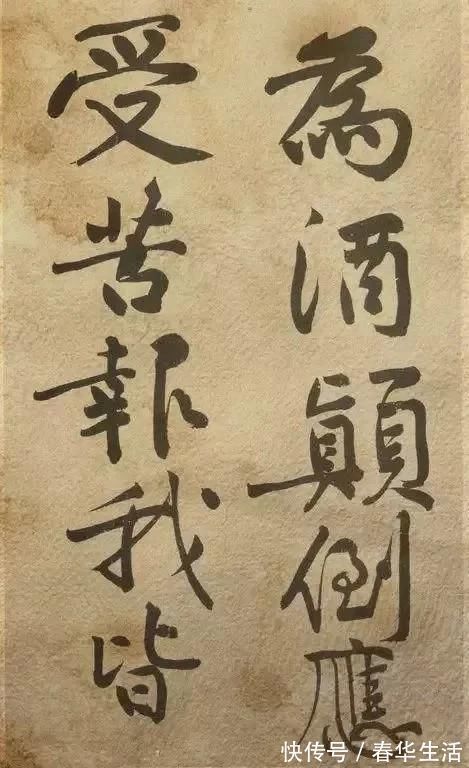 為酒顛倒應
受苦報我皆
快传号／春华生活